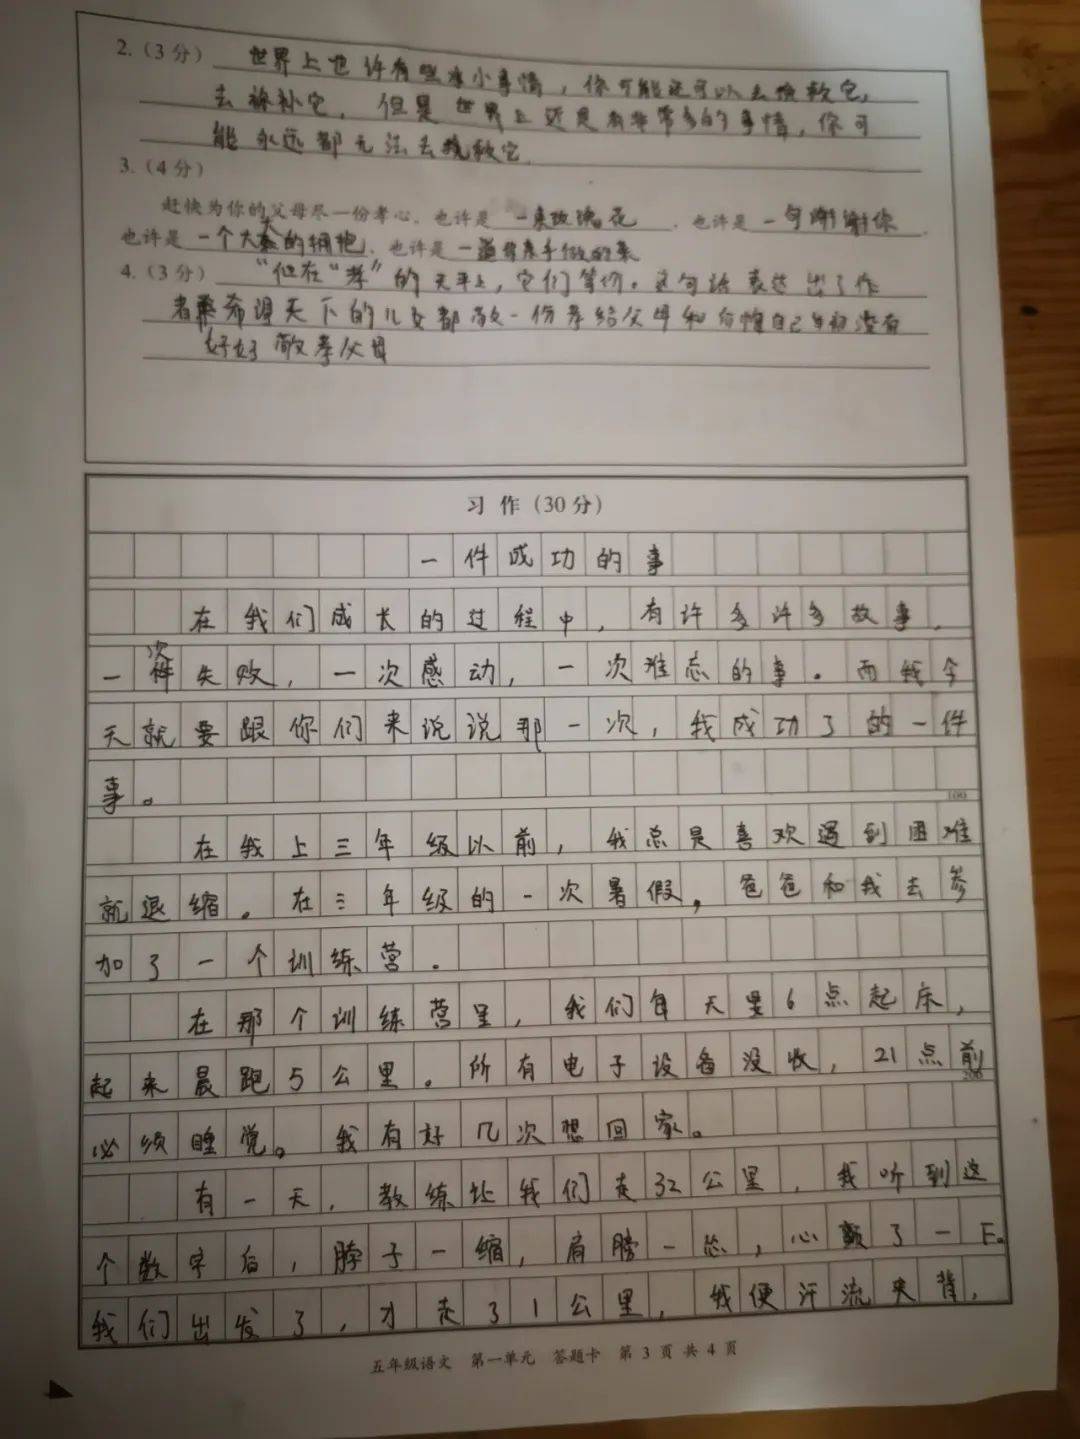 2.(3分) 世界上也许有些小事情，你可能还可以去挽救它，
去弥补它，但是世界上还是有非常多的事情，你可
能永远都无法去挽救它
3.(4分)
赶快为你的父母尽一份孝心，也许是 一朵玫瑰花 ，也许是 一句谢谢你 ，
也许是 一个大大的拥抱 ，也许是 一道亲手做的菜
4.(3分) “但在“孝”的天平上，它们等价。这句话表达出了作
者希望天下的儿女都敬一份孝给父母和自己没有
好好敬孝父母
习作(30分)
一件成功的事
在我们成长的过程中，有许多许多故事，
一次失败，一次感动，一次难忘的事。而我今
天就要跟你们来说说那一次，我成功了的一件
事。
100
在我上三年级以前，我总是喜欢遇到困难
就退缩。在三年级的一次暑假，爸爸和我去参
加了一个训练营。
在那个训练营里，我们每天要6点起床，
起来晨跑5公里。所有电子设备没收，21点前
200
必须睡觉。我有好几次想回家。
有一天，教练让我们走32公里，我听到这
个数字后，脖子一缩，肩膀一怂，心颤了一下。
我们出发了，才走了1公里，我便汗流夹背，
五年级语文 第一单元 答题卡 第3页共4页